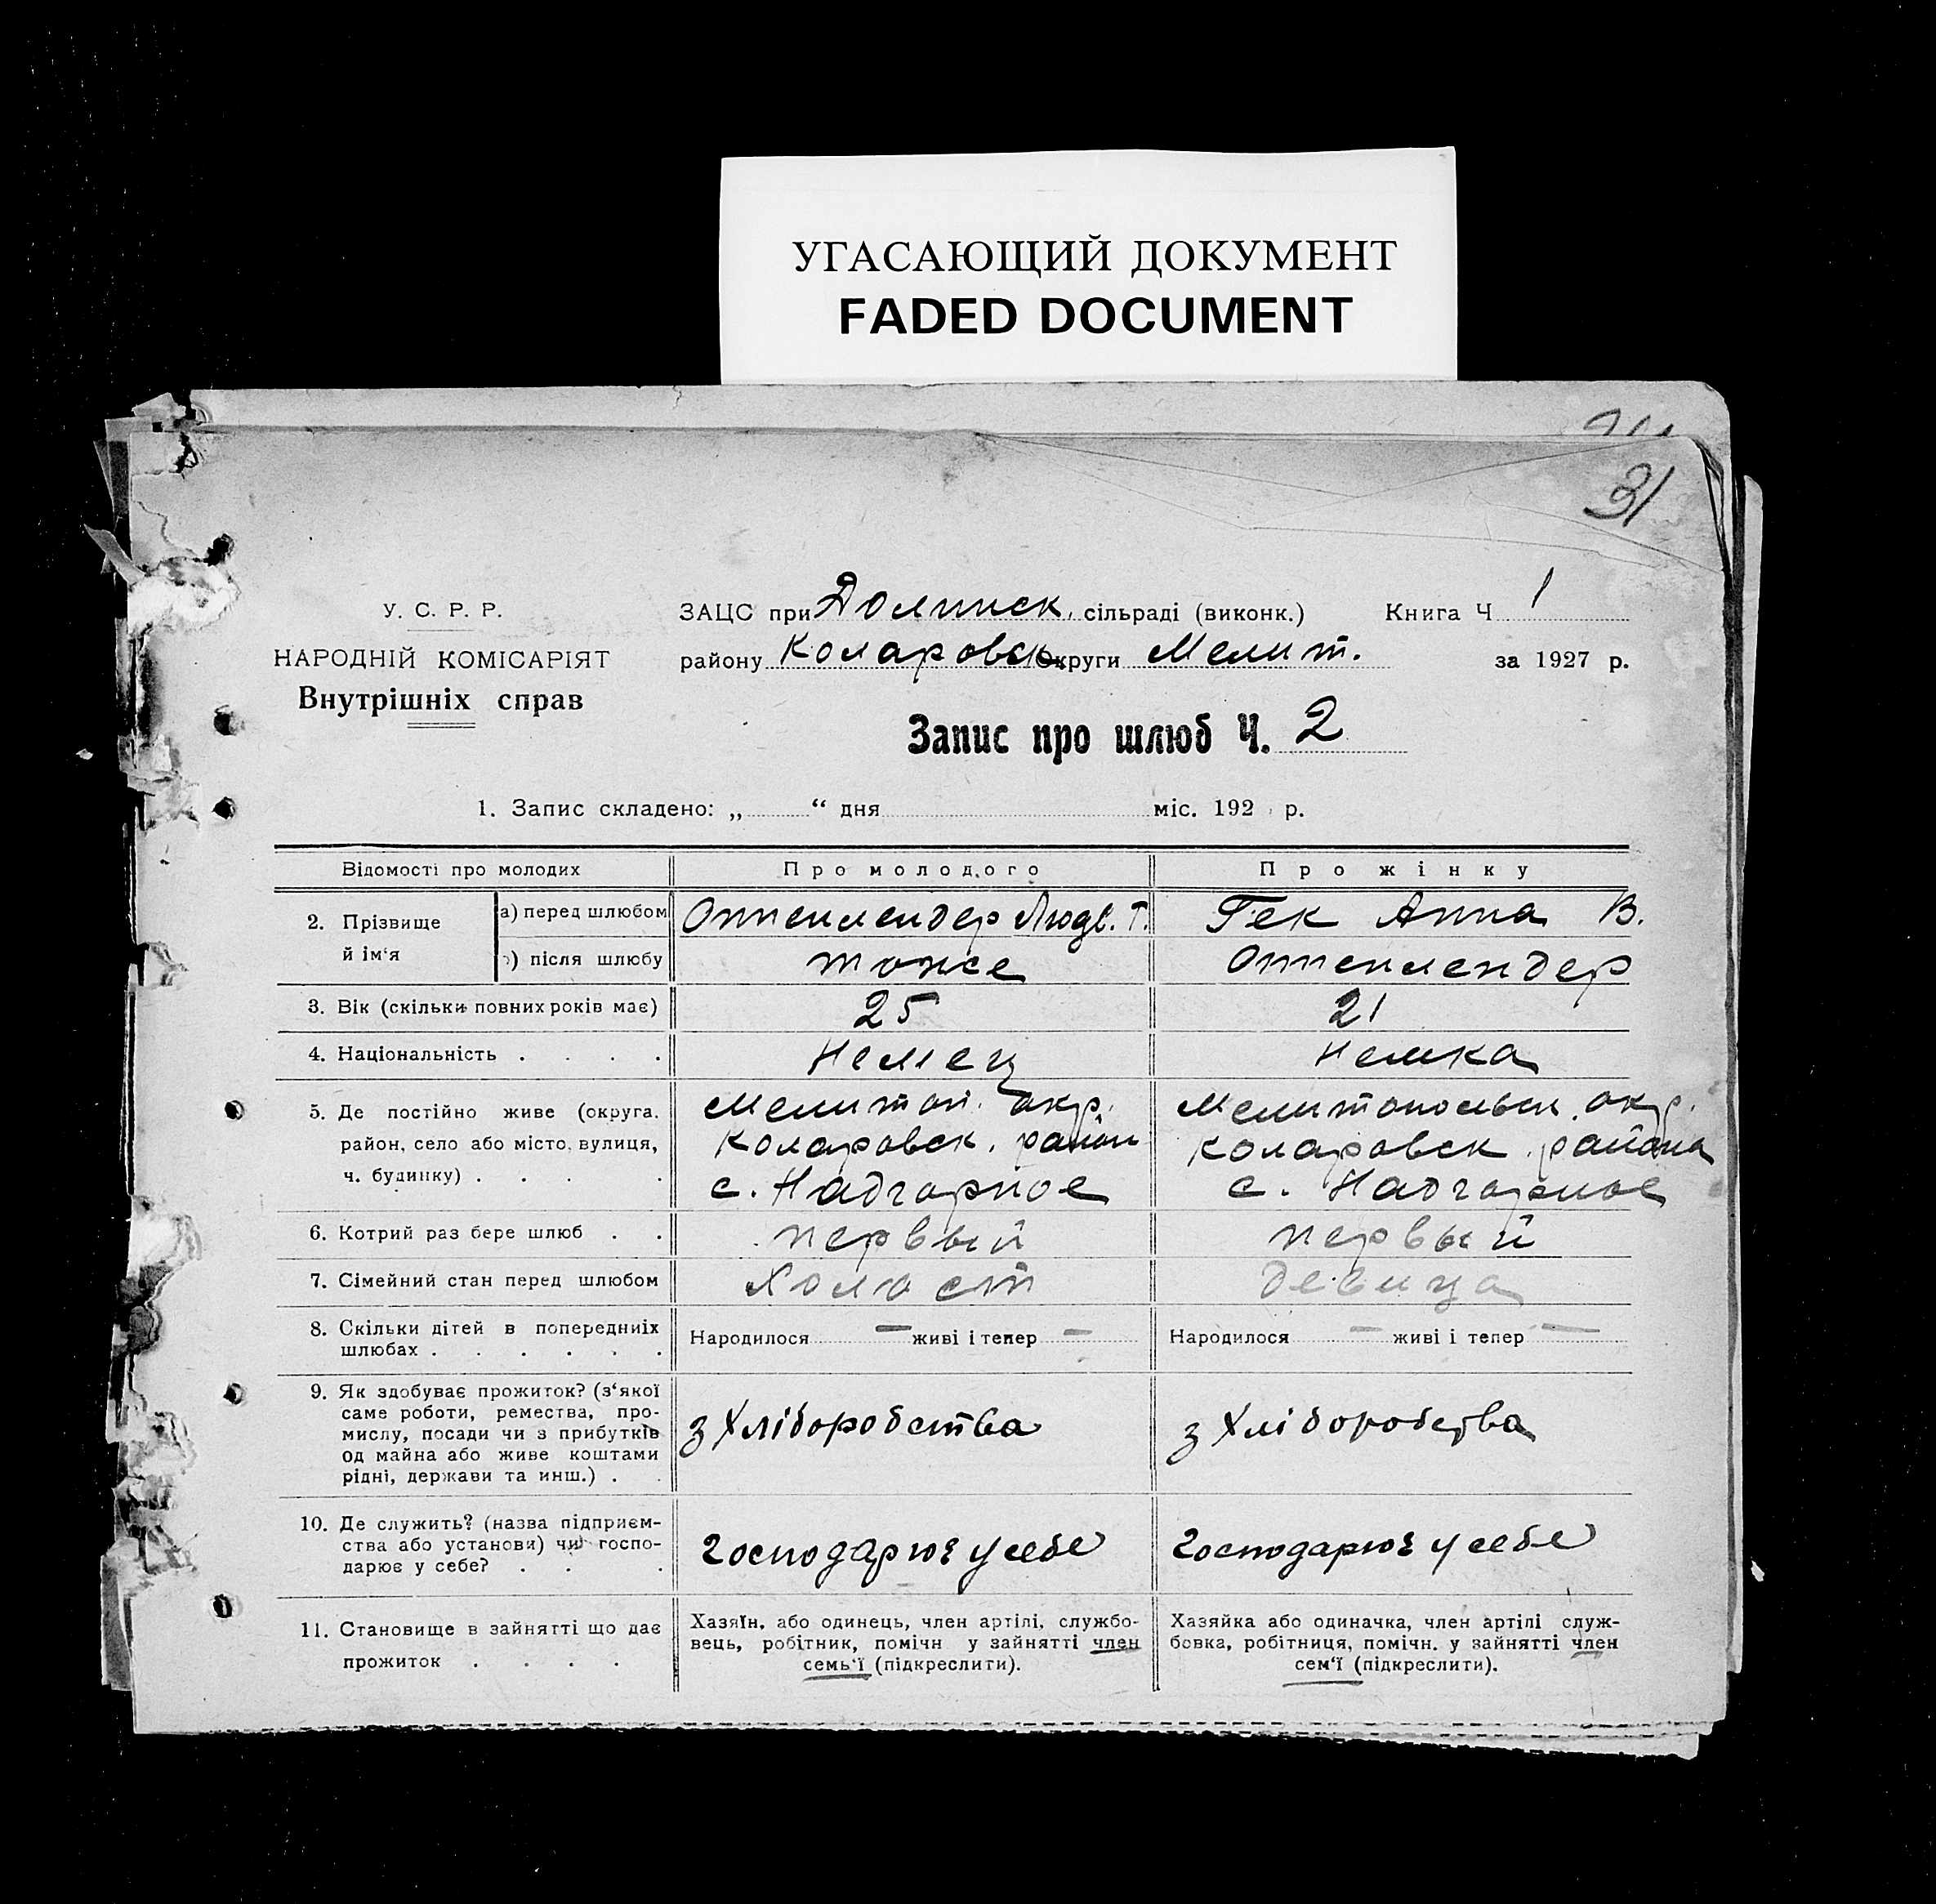 УГАСАЮЩИЙ ДОКУМЕНТ
FADED DOCUMENT
31
У. С. Р. Р.
НАРОДНІЙ КОМІСАРІЯТ
Внутрішніх справ
ЗАЦС при Долинск. сільраді (виконк.) Книга Ч 1
району Коларовск. округи Мелит. за 1927 р.
Запис про шлюб Ч. 2
1. Запис складено: „ “ дня міс. 192 р.
Відомості про молодих
Про молодого
Про жінку
2. Прізвище й ім‘я
а) перед шлюбом Оппенлендер Людв. Г. Гек Анна В.
) після шлюбу тоже Оппенлендер
3. Вік (скільки повних років має) 25 21
4. Національність . . . . Немец Немка
5. Де постійно живе (округа.
район, село або місто, вулиця,
ч. будинку) . . . .
Мелитоп. окр.
Коларовск. район
с. Надгорное
Мелитопольск. окр.
Коларовск. района
с. Надгорное
6. Котрий раз бере шлюб . . первый первый
7. Сімейний стан перед шлюбом Холост девица
8. Скільки дітей в попередниіх
шлюбах . . . . . .
Народилося — живі і тепер —
Народилося — живі і тепер —
9. Як здобуває прожиток? (з‘якої
саме роботи, ремества, про-
мислу, посади чи з прибутків
од майна або живе коштами
рідні, держави та инш.) . .
з Хліборобства
з Хліборобства
10. Де служить? (назва підприєм-
ства або установи) чи госпо-
дарює у себе? . . .
господарює у себе
господарює у себе
11. Становище в зайнятті що дає
прожиток . . . .
Хазяїн, або одинець, член артілі, службо-
вець, робітник, помічн у зайнятті член
семь‘ї (підкреслити).
Хазяйка або одиначка, член артілі служ-
бовка, робітниця, помічн. у зайнятті член
сем‘ї (підкреслити).